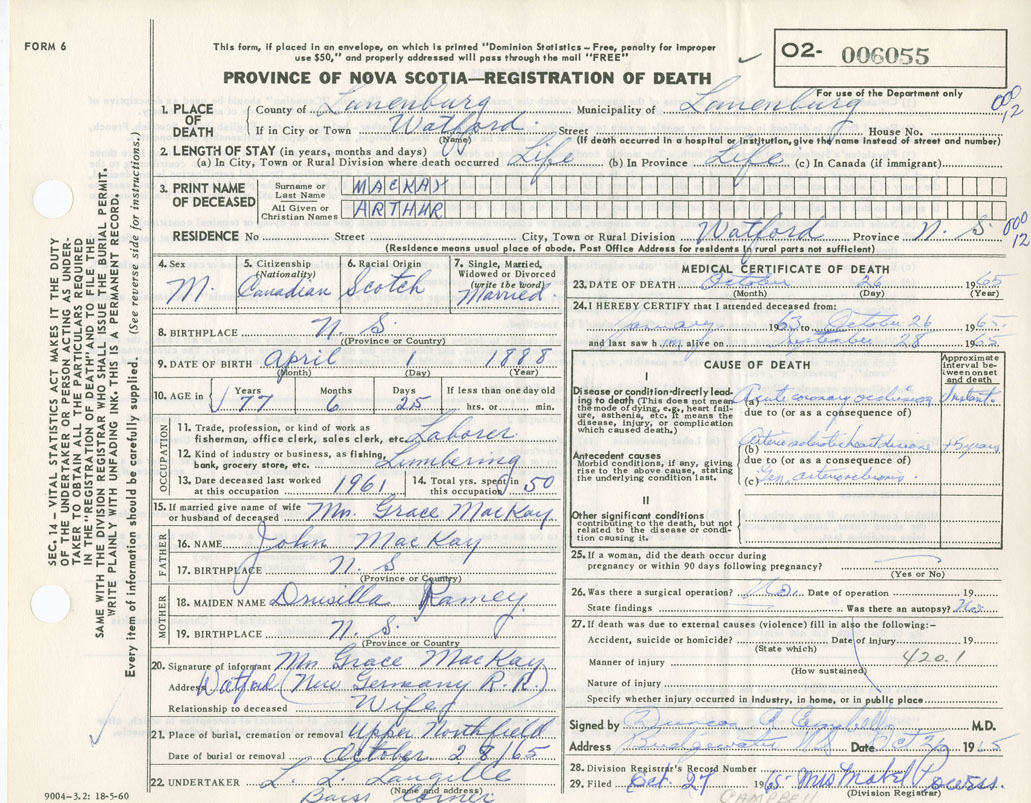 FORM 6
This form, if placed in an envelope, on which is printed "Dominion Statistics – Free, penalty for improper
use $50," and properly addressed will pass through the mail "FREE"
O2- 006055
For use of the Department only
PROVINCE OF NOVA SCOTIA—REGISTRATION OF DEATH
SEC. 14 – VITAL STATISTICS ACT MAKES IT THE DUTY
OF THE UNDERTAKER OR PERSON ACTING AS UNDER-
TAKER TO OBTAIN ALL THE PARTICULARS REQUIRED
IN THE "REGISTRATION OF DEATH" AND TO FILE THE
SAME WITH THE DIVISION REGISTRAR WHO SHALL ISSUE THE BURIAL PERMIT.
WRITE PLAINLY WITH UNFADING INK. THIS IS A PERMANENT RECORD.
Every item of information should be carefully supplied. (See reverse side for instructions.)
1. PLACE OF DEATH
County of Lunenburg Municipality of Lunenburg 000 12
If in City or Town Watford Street House No.
(Name) (If death occurred in a hospital or institution, give the name instead of street and number)
2. LENGTH OF STAY (in years, months and days)
(a) In City, Town or Rural Division where death occurred Life (b) In Province Life (c) In Canada (if immigrant)
3. PRINT NAME OF DECEASED
Surname or Last Name MACKAY
All Given or Christian Names ARTHUR
RESIDENCE No Street City, Town or Rural Division Watford Province N. S. 000 12
(Residence means usual place of abode. Post Office Address for residents in rural parts not sufficient)
4. Sex M.
5. Citizenship (Nationality) Canadian
6. Racial Origin Scotch
7. Single, Married, Widowed or Divorced (write the word) Married
8. BIRTHPLACE N. S.
(Province or Country)
9. DATE OF BIRTH April 1 1888
(Month) (Day) (Year)
10. AGE in Years 77 Months 6 Days 25 If less than one day old hrs. or min.
OCCUPATION
11. Trade, profession, or kind of work as
fisherman, office clerk, sales clerk, etc. Laborer
12. Kind of industry or business, as fishing,
bank, grocery store, etc. Lumbering
13. Date deceased last worked at this occupation 1961
14. Total yrs. spent in this occupation 50
15. If married give name of wife
or husband of deceased Mrs. Grace MacKay
FATHER
16. NAME John MacKay
17. BIRTHPLACE N. S
(Province or Country)
MOTHER
18. MAIDEN NAME Drusilla Ramey
19. BIRTHPLACE N. S
(Province or Country
20. Signature of informant Mrs Grace MacKay
Address Watford (New Germany R. R.)
Relationship to deceased Wife
21. Place of burial, cremation or removal Upper Northfield
Date of burial or removal October 28/65
22. UNDERTAKER L. L. Langille
(Name and address)
Corner
9004-3.2: 18-5-60
MEDICAL CERTIFICATE OF DEATH
23. DATE OF DEATH October 26 1965
(Month) (Day) (Year)
24. I HEREBY CERTIFY that I attended deceased from:
January 1963 to October 26 1965
and last saw him alive on September 28 1965
CAUSE OF DEATH
Approximate interval between onset and death
I
Disease or condition directly lead-
ing to death (This does not mean
the mode of dying, e.g., heart fail-
ure, asthenia, etc. It means the
disease, injury, or complication
which caused death.)
(a) Acute coronary occlusion
due to (or as a consequence of)
Antecedent causes
Morbid conditions, if any, giving
rise to the above cause, stating
the underlying condition last.
(b) heart disease
due to (or as a consequence of)
(c) Gen.
II
Other significant conditions
contributing to the death, but not
related to the disease or condi-
tion causing it.
25. If a woman, did the death occur during
pregnancy or within 90 days following pregnancy?
(Yes or No)
26. Was there a surgical operation? No. Date of operation 19
State findings Was there an autopsy?
27. If death was due to external causes (violence) fill in also the following:–
Accident, suicide or homicide? Date of injury 19
(State which)
Manner of injury 420.1
(How sustained)
Nature of injury
Specify whether injury occurred in industry, in home, or in public place
Signed by Duncan A Campbell M.D.
Address Bridgewater NS Date Oct 1965
28. Division Registrar's Record Number
29. Filed Oct. 27 1965 Mrs Mabel
(Division Registrar)
CAMPBELL